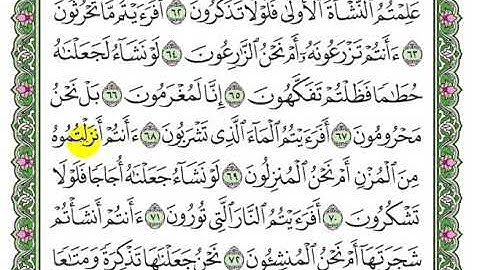 عَلِمْتُمُ ٱلنَّشْأَةَ ٱلْأُولَىٰ فَلَوْلَا تَذَكَّرُونَ ٦٢ أَفَرَءَيْتُم مَّا تَحْرُثُونَ
٦٣ ءَأَنتُمْ تَزْرَعُونَهُۥٓ أَمْ نَحْنُ ٱلزَّٰرِعُونَ ٦٤ لَوْ نَشَآءُ لَجَعَلْنَٰهُ
حُطَٰمًا فَظَلْتُمْ تَفَكَّهُونَ ٦٥ إِنَّا لَمُغْرَمُونَ ٦٦ بَلْ نَحْنُ
مَحْرُومُونَ ٦٧ أَفَرَءَيْتُمُ ٱلْمَآءَ ٱلَّذِى تَشْرَبُونَ ٦٨ ءَأَنتُمْ أَنزَلْتُمُوهُ
مِنَ ٱلْمُزْنِ أَمْ نَحْنُ ٱلْمُنزِلُونَ ٦٩ لَوْ نَشَآءُ جَعَلْنَٰهُ أُجَاجًا فَلَوْلَا
تَشْكُرُونَ ٧٠ أَفَرَءَيْتُمُ ٱلنَّارَ ٱلَّتِى تُورُونَ ٧١ ءَأَنتُمْ أَنشَأْتُمْ
شَجَرَتَهَآ أَمْ نَحْنُ ٱلْمُنشِـُٔونَ ٧٢ نَحْنُ جَعَلْنَٰهَا تَذْكِرَةً وَمَتَٰعًا